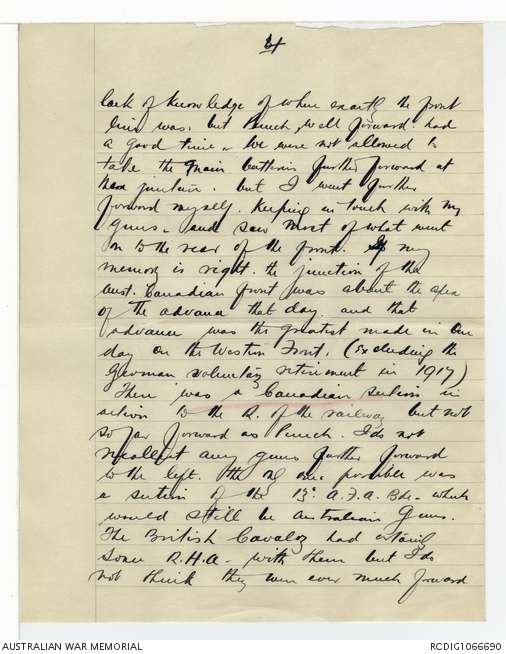 lack of knowledge of where exactly the front
line was. but Punch, well forward. had
a good time. We were not allowed to
take the main batteries further forward at
this juncture. but I went further
forward myself. Keeping in touch with my
guns. and saw most of what went
on to the rear of the front. If my
memory is right. the junction of the
Aust. Canadian front was about the apex
of the advance that day. and that
advance was the greatest made in one
day on the Western Front. (excluding the
German voluntary retirement in 1917)
There was a Canadian section in
action to the R. of the railway but not
so far forward as Punch. I do not
recollect any guns further forward
to the left. The only one possible was
a section of the 13th A.F.A. Bde. which
would still be Australian Guns.
The British Cavalry had
some R.H.A. with them but I do
not think they were ever much forward
AUSTRALIAN WAR MEMORIAL
RCDIG1066690